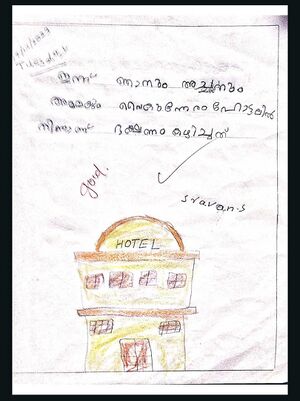 Tuesday
ഇന്ന് ഞാനും അച്ഛനും
അമ്മയും വൈകുന്നേരം ഹോട്ടലിൽ
നിന്നാണ് ഭക്ഷണം കഴിച്ചത്
good.
Sravan.S
HOTEL